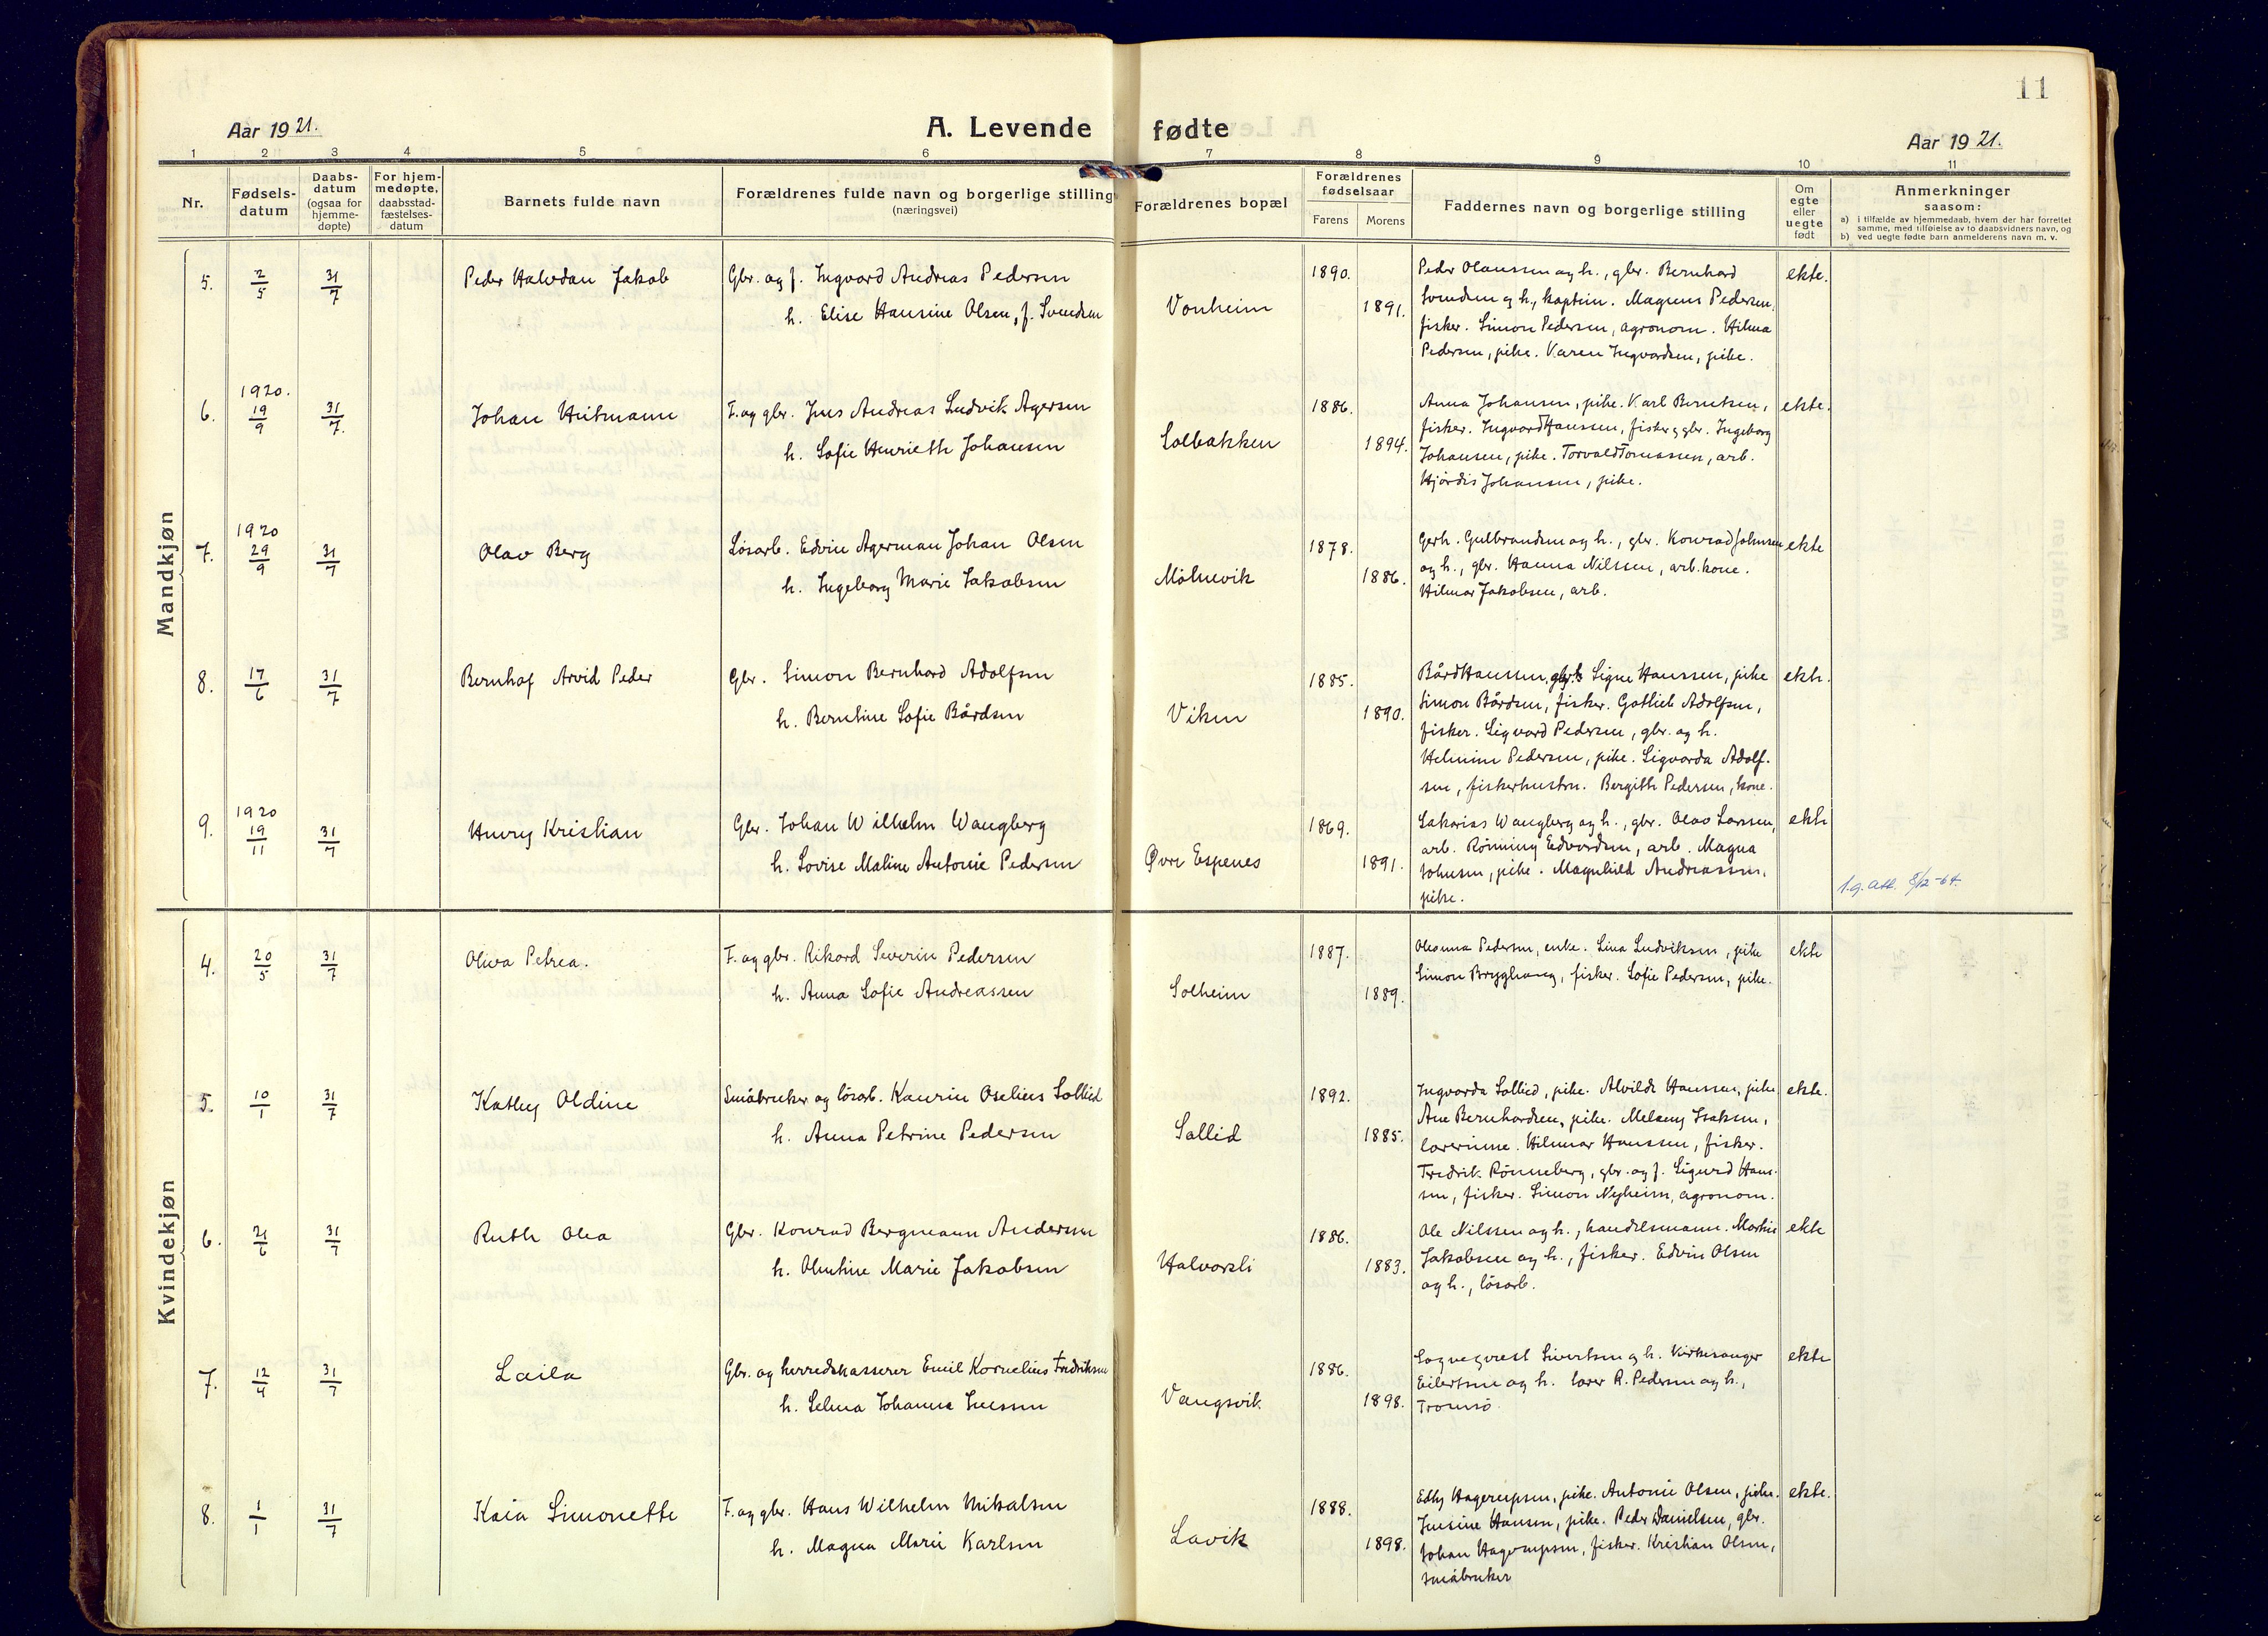 11
Aar 1921.
A. Levende fødte
Aar 1921.
1 2 3 4 5 6 7 8 9 10 11
Nr.
Fødsels-
datum
Daabs-
datum
(ogsaa for
hjemme-
døpte)
For hjem-
medøpte,
daabsstad-
fæstelses-
datum
Barnets fulde navn
Forældrenes fulde navn og borgerlige stilling
(næringsvei)
Forældrenes bopæl
Forældrenes
fødselsaar
Farens Morens
Faddernes navn og borgerlige stilling
Om
egte
eller
uegte
født
Anmerkninger
saasom:
a) i tilfælde av hjemmedaab, hvem der har forrettet
samme, med tilføielse av to daabsvidners navn, og
b) ved uegte fødte barn anmelderens navn m. v.
Mandkjøn
5. 2/5 31/7 Peder Halvdan Jakob
Gbr. og f. Ingvard Andreas Pedersen
h. Elise Hansine Olsen, f. Svendsen
Vonheim
1890.
1891.
Peder Olaussen og h., gbr. Bernhard
Svendsen og h., kaptein. Magnus Pedersen,
fisker. Simon Pedersen, agronom. Hilma
Pedersen, pike. Karen Ingvardsen, pike.
ekte.
1920.
6. 19/9 31/7. Johan Hitmann
F. og gbr. Jens Andreas Ludvik Agersen
h. Sofie Henriette Johansen
Solbakken
1886.
1894.
Anna Johansen, pike. Karl Berntsen,
fisker. Ingvard Hanssen, fisker og gbr. Ingeborg
Johansen, pike. Torvald Tomassen, arb.
Hjørdis Johansen, pike.
ekte.
1920
7. 29/9 31/7 Olav Berg
Løsarb. Edvin Agerman Johan Olsen
h. Ingeborg Marie Jakobsen
Mølnevik
1878.
1886.
Gerh. Gulbrandsen og h., gbr. Konrad Johnsen
og h., gbr. Hanna Nilssen, arb. kone.
Hilmar Jakobsen, arb.
ekte
8. 17/6 31/7 Bernhof Arvid Peder
Gbr. Simon Bernhard Adolfsen
h. Berntine Sofie Bårdsen
Viken
1885.
1890.
Bård Hanssen, gbr. Signe Hanssen, pike
Simon Bårdsen, fisker. Gotlieb Adolfsen,
fisker. Sigvard Pedersen, gbr. og h.
Helmine Pedersen, pike. Sigvarda Adolf-
sen, fiskerhustru. Bergitte Pedersen, kone.
ekte.
1920
9. 19/11 31/7 Henry Kristian
Gbr. Johan Wilhelm Wangberg
h. Lovise Maline Antonie Pedersen
Øvre Espenes
1869.
1891.
Sakarias Wangberg og h., gbr. Olav Larssen,
arb. Rønning Edvardsen, arb. Magna
Johnsen, pike. Magnhild Andreassen,
pike.
ekte
f.g. att. 8/12-64.
Kvindekjøn
4. 20/5 31/7 Oliva Petrea.
F. og gbr. Rikard Severin Pedersen
h. Anna Sofie Andreassen
Solheim
1887.
1889.
Oleanna Pedersen, enke. Lina Ludviksen, pike
Simon Brygghaug, fisker. Sofie Pedersen, pike.
ekte
5. 10/1 31/7 Kathy Oldine
Småbruker og løsarb. Kaurin Oselius Sollied
h. Anna Petrine Pedersen
Sollid
1892.
1885.
Ingvarda Sollied, pike. Alvilde Hanssen, pike
Ane Bernhardsen, pike. Melseng Isaksen,
lærerinne. Hilmar Hanssen, fisker.
Fredrik Rønneberg, gbr. og f. Sigurd Hans-
sen, fisker. Simon Nyheim, agronom.
ekte.
6. 21/6 31/7 Ruth Olea
Gbr. Konrad Bergmann Andersen
h. Olentine Marie Jakobsen
Halvorsli
1886.
1883.
Ole Nilssen og h., handelsmann. Martin
Jakobsen og h., fisker. Edvin Olsen
og h., løsarb.
ekte
7. 12/4 31/7 Laila
Gbr. og herredskasserer Emil Kornelius Fredriksen
h. Selma Johanne Jenssen
Vangsvik
1886.
1898.
Sogneprest Sivertsen og h. Kirkesanger
Eilertsen og h. lærer R. Pedersen og h.,
Tromsø.
ekte
8. 1/1 31/7 Kaia Simonette
F. og gbr. Hans Wilhelm Mikalsen
h. Magna Marie Karlsen
Lavik
1888.
1898.
Edly Hagerupsen, pike. Antonie Olsen, pike.
Jensine Hansen, pike. Peder Danielsen, gbr.
Johan Hagerupsen, fisker. Kristian Olsen,
småbruker
ekte.